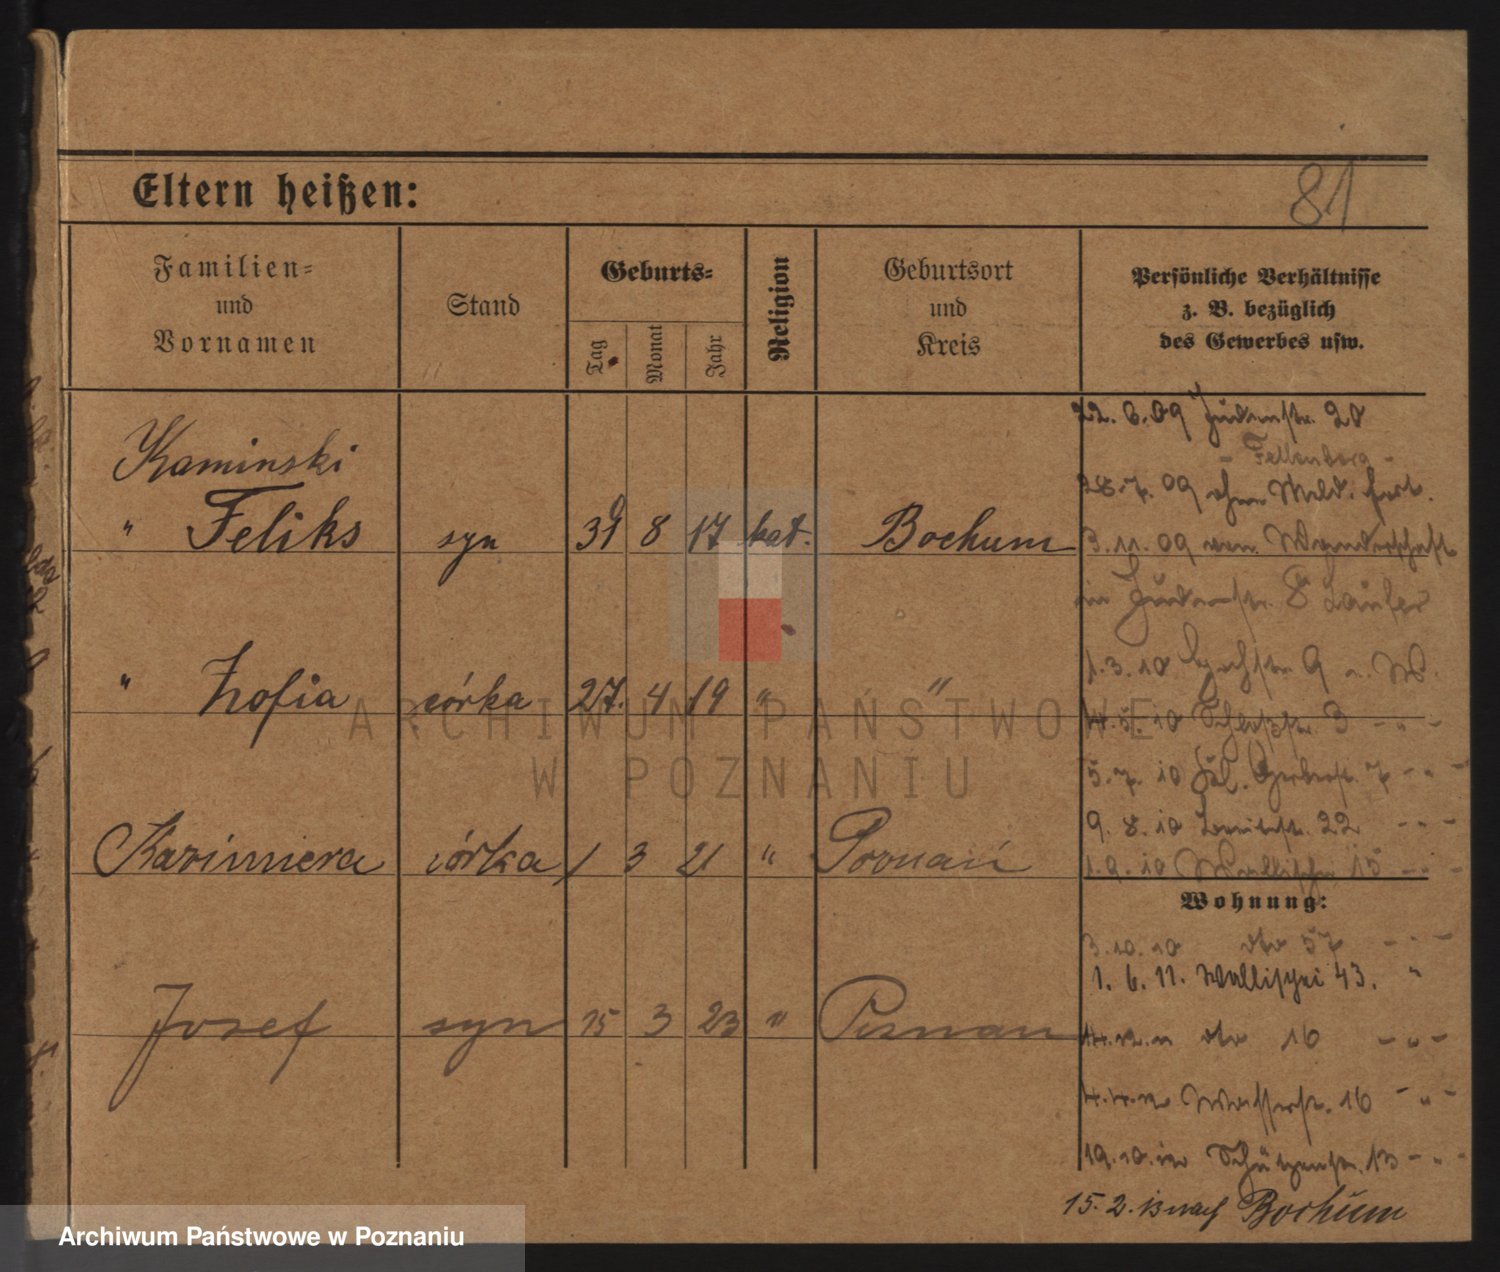 81
Eltern heißen:
Familien-
und
Vornamen
Stand
Geburts-
Tag
Monat
Jahr
Religion
Geburtsort
und
Kreis
Persönliche Verhältnisse
z. B. bezüglich
des Gewerbes usw.
Kaminski
" Feliks syn 8 17 kat. Bochum
" Zofia córka 27. 4 19 " "
Kazimiera córka 1 3 21 " Poznań
Josef syn 15 3 23 " Poznan
22. 6. 09 Judenstr. 20
- Fellenberg -
28. 7. 09 ohne Meld. fort.
3. 11. 09 von Wanderschaft
in Judenstr. 8 Laufer
1. 3. 10 9
10 Schloßstr. 3 - " -
5. 7. 10 Kl. Gerberstr. 7 - " -
9. 8. 10 Breitestr. 22 - " -
1. 9. 10 Wallischei 15 - " -
Wohnung:
3. 10. 10 dto 57 - " -
1. 6. 11. Wallischei 43. "
dto 16 - " -
Wasserstr. 16 - " -
19. 10. Schützenstr. 13 - " -
15. 2. 13 nach Bochum
ARCHIWUM PAŃSTWOWE
W POZNANIU
Archiwum Państwowe w Poznaniu